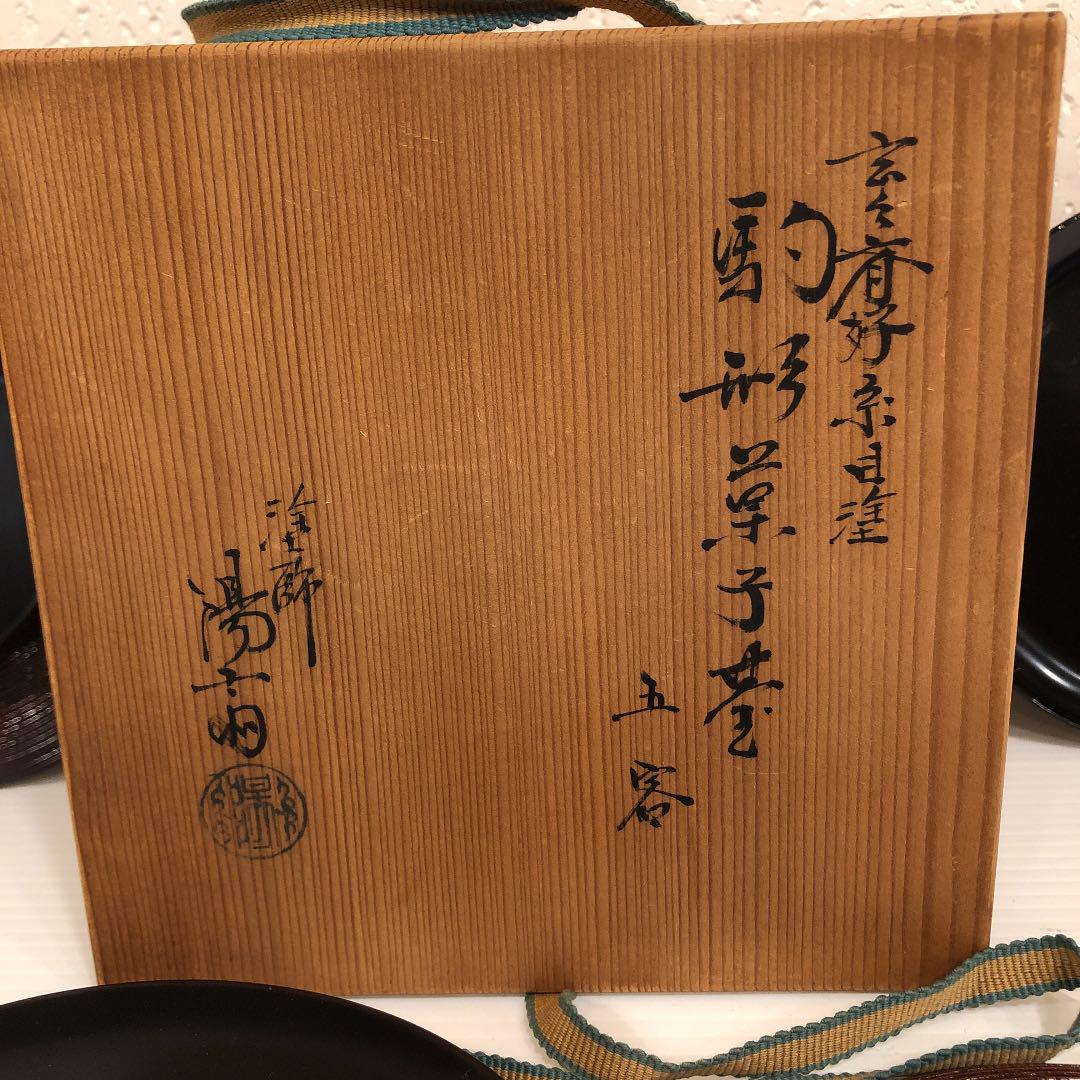 玄々斎好糸目塗
駒形菓子台
五客
塗師